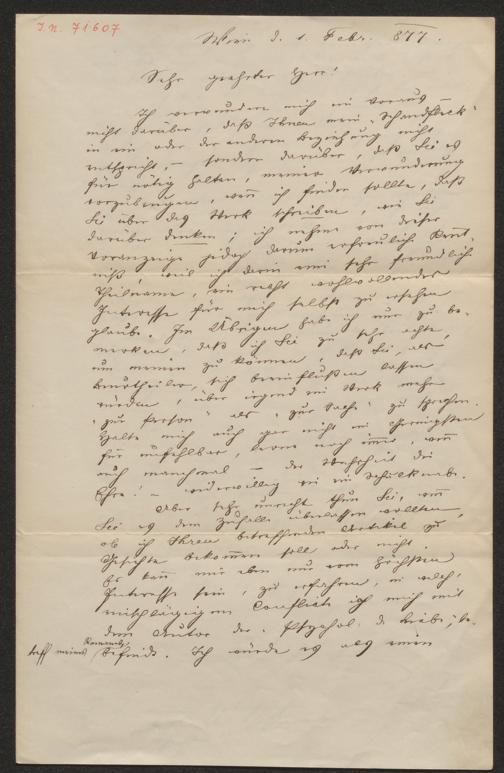 I.N. 71607
Wien d. 1. Febr. 877.
Sehr geehrter Herr!
Ich verwundere mich im Voraus
nicht darüber, daß Ihnen mein „Schandfleck"
in ein oder der anderen Beziehung nicht
entspricht, – sondern darüber, daß Sie es
für nötig halten, meiner Verwunderung
vorzubeugen, wenn ich finden sollte, daß
Sie über das Werk schreiben, wie Sie
darüber denken; ich nehme von dieser
Voranzeige jedoch darum erfreulich Kennt-
niß, weil ich darin eine sehr freundliche
Theilname, ein recht wohlwollendes
Interesse für mich selbst zu ersehen
glaube. Im Übrigen habe ich nur zu be-
merken, daß ich Sie zu sehr achte,
um meinen zu können, daß Sie, als
Beurtheiler, sich beeinflußen lassen
würden, über irgend ein Werk mehr
„zur Person" als „zur Sache" zu sprechen.
Halte mich auch gar nicht im geringsten
für unfehlbar, lerne noch immer, wenn
auch manchmal – der Wahrheit die
Ehre! – widerwillig wie ein Schulknabe.
Aber sehr unrecht thun Sie, wenn
Sie es dem Zufalle überlassen wollten,
ob ich Ihren betreffenden Artikel zu
Gesichte bekommen soll oder nicht.
Es kann mir eben nur vom höchsten
Interesse sein, zu erfahren, in welch'
Conflicte ich mich mit
dem Autor der „Psychol. d. Liebe", be-
treff meines Romanes, befinde. Ich würde es als einen